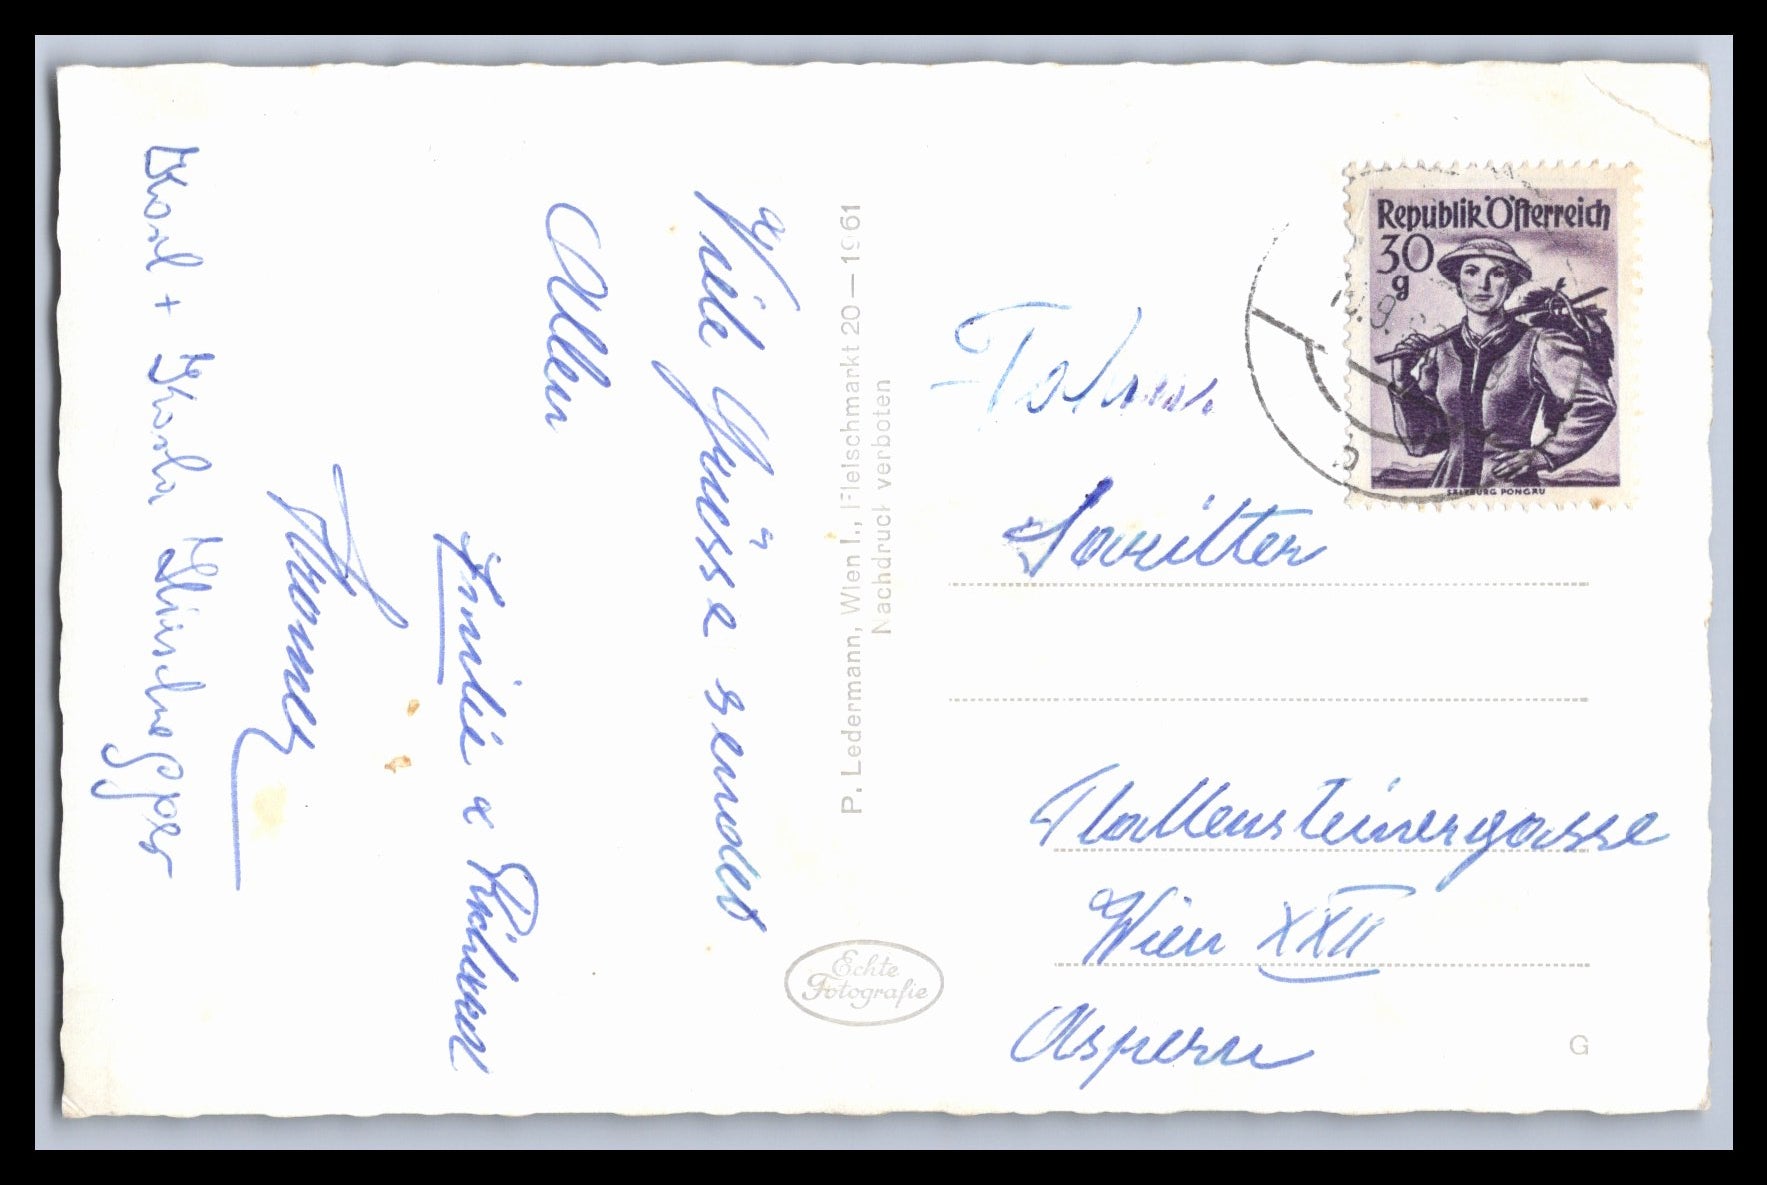 Viele Grüsse sendet
Allen
Emilie & Richard
Kromer
Karl + Karla
P. Ledermann, Wien I., Fleischmarkt 20—1961
Nachdruck verboten
Echte
Fotografie
Republik Österreich
30
g
SALZBURG PONGAU
Wien XXII
Aspern
G